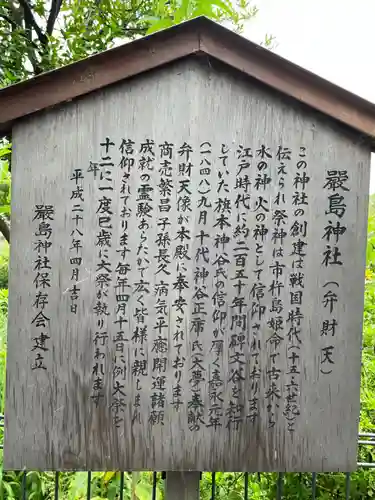 嚴島神社（弁財天）
この神社の創建は戦国時代（十五・六世紀）と
伝えられ祭神は市杵島姫命で古来から
水の神火の神として信仰されております
江戸時代に約二百五十年間碑文谷を知行
していた旗本神谷氏の信仰が厚く嘉永元年
（一八四八）九月十代神谷正庸氏大夢奉献の
弁財天像が本殿に奉安されております
商売繁昌子孫長久病気平癒開運諸願
成就の霊験あらたかで広く皆様に親しまれ
信仰されております毎年四月十五日に例大祭を
十二年に一度巳歳に大祭が執り行われます
平成二十八年四月吉日
嚴島神社保存会建立